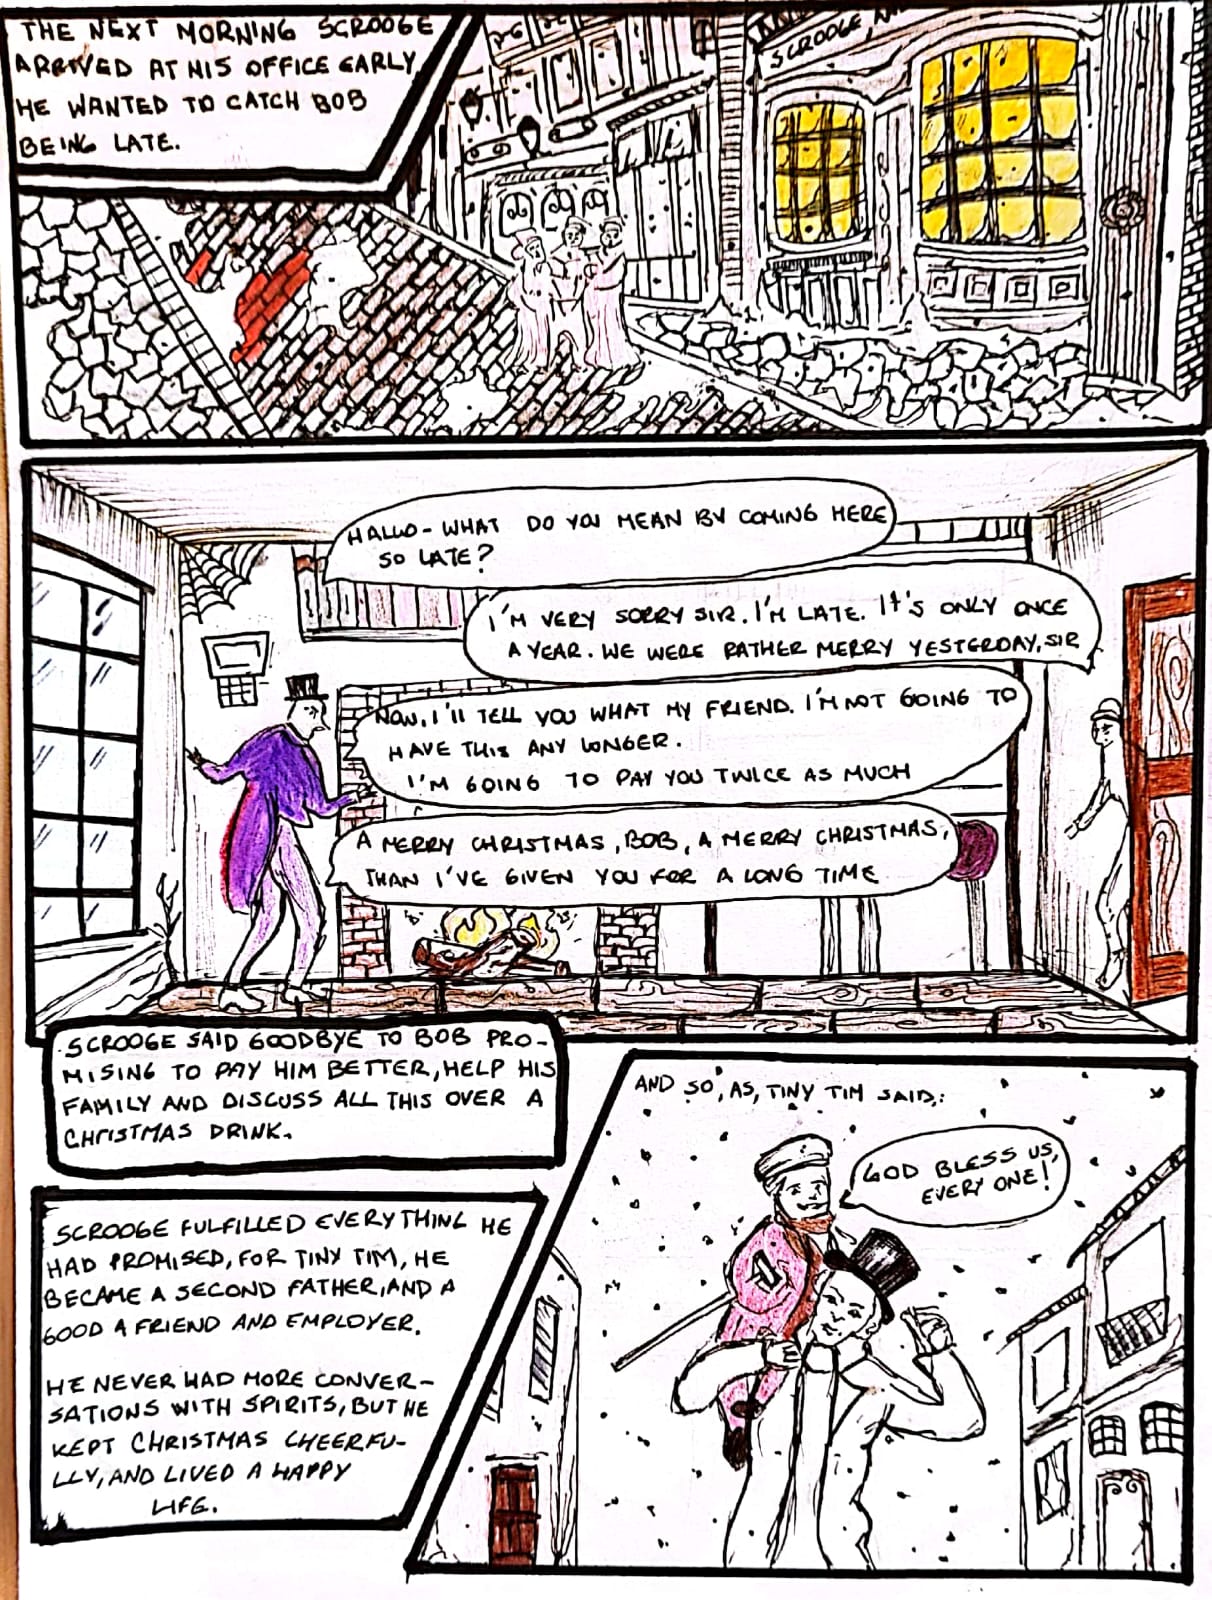 THE NEXT MORNING SCROOGE
ARRIVED AT HIS OFFICE EARLY,
HE WANTED TO CATCH BOB
BEING LATE.
SCROOGE AND
HALLO - WHAT DO YOU MEAN BY COMING HERE
SO LATE?
I'M VERY SORRY SIR. I'M LATE. It'S ONLY ONCE
A YEAR. WE WERE RATHER MERRY YESTERDAY, SIR
NOW, I'll TELL YOU WHAT MY FRIEND. I'M NOT GOING TO
HAVE THIS ANY LONGER.
I'M GOING TO PAY YOU TWICE AS MUCH
A MERRY CHRISTMAS, BOB, A MERRY CHRISTMAS,
THAN I'VE GIVEN YOU FOR A LONG TIME
SCROOGE SAID GOODBYE TO BOB PRO-
MISING TO PAY HIM BETTER, HELP HIS
FAMILY AND DISCUSS ALL THIS OVER A
CHRISTMAS DRINK.
SCROOGE FULFILLED EVERYTHING HE
HAD PROMISED, FOR TINY TIM, HE
BECAME A SECOND FATHER, AND A
GOOD A FRIEND AND EMPLOYER.
HE NEVER HAD MORE CONVER-
SATIONS WITH SPIRITS, BUT HE
KEPT CHRISTMAS CHEERFU-
LLY, AND LIVED A HAPPY
LIFE.
AND SO, AS, TINY TIM SAID,:
GOD BLESS US,
EVERY ONE!